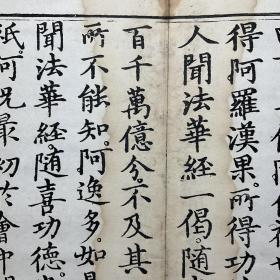 得阿羅漢果。所得功
人聞法華經一偈。随
百千萬億分不及其
所不能知。阿逸多。如是
聞法華經。随喜功德。
祇。何況最初於會中